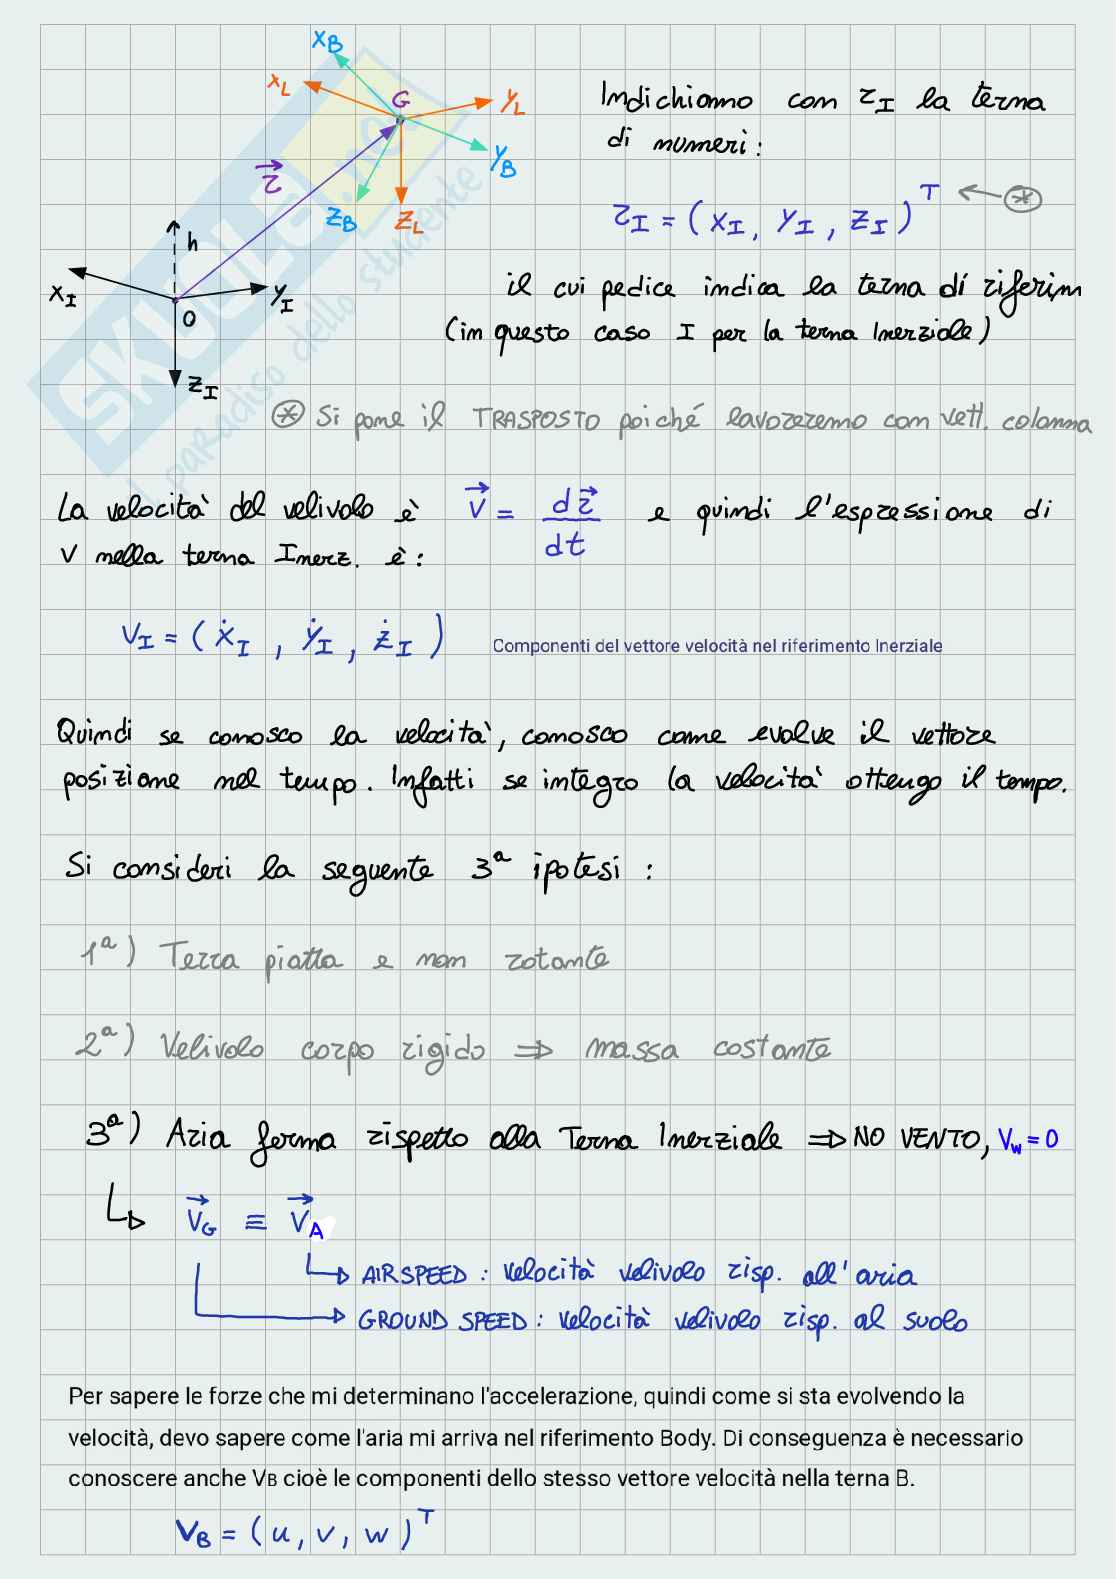 x_B
x_L
G
y_L
y_B
z_B
z_L
r⃗
h
x_I
y_I
O
z_I
SKUOLA.net
il paradiso dello studente
Indichiamo con r_I la terna
di numeri:
r_I = ( x_I, y_I , z_I )^T ← ⊛
il cui pedice indica la terna di riferim
(in questo caso I per la terna Inerziale)
⊛ Si pone il TRASPOSTO poiché lavoreremo con vett. colonna
La velocità del velivolo è V⃗ = dr⃗/dt e quindi l'espressione di
V nella terna Inerz. è:
V_I = ( ẋ_I , ẏ_I , ż_I ) Componenti del vettore velocità nel riferimento Inerziale
Quindi se conosco la velocità, conosco come evolve il vettore
posizione nel tempo. Infatti se integro la velocità ottengo il tempo.
Si consideri la seguente 3ª ipotesi :
1ª) Terra piatta e non rotante
2ª) Velivolo corpo rigido ⇒ massa costante
3ª) Aria ferma rispetto alla Terna Inerziale ⇒ NO VENTO, V_w = 0
V⃗_G ≡ V⃗_A
AIRSPEED : velocità velivolo risp. all'aria
GROUND SPEED : velocità velivolo risp. al suolo
Per sapere le forze che mi determinano l'accelerazione, quindi come si sta evolvendo la
velocità, devo sapere come l'aria mi arriva nel riferimento Body. Di conseguenza è necessario
conoscere anche VB cioè le componenti dello stesso vettore velocità nella terna B.
V_B = ( u, v, w )^T